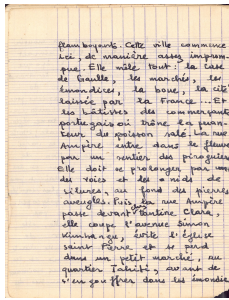 flamboyants. Cette ville commence
ici, de manière assez impromp-
tue. Elle mêle tout : la case
de Gaulle, les marchés, les
immondices, la boue, la cité
laissée par la France... Et
les bâtisses des commerçants
portugais où trône la puan-
teur du poisson salé. La rue
Ampère entre dans le fleuve
par un sentier des piroguiers
Elle doit se prolonger par
des voies et des nids de
silures, au fond des pierres
aveugles. Puis, la rue Ampère
passe devant tantine Clara,
elle coupe l'avenue Simon
Kimbangu, évite l'Eglise
saint Pierre et se perd
dans un petit marché, au
quartier Tahiti, avant de
s'engouffrer dans les immondi